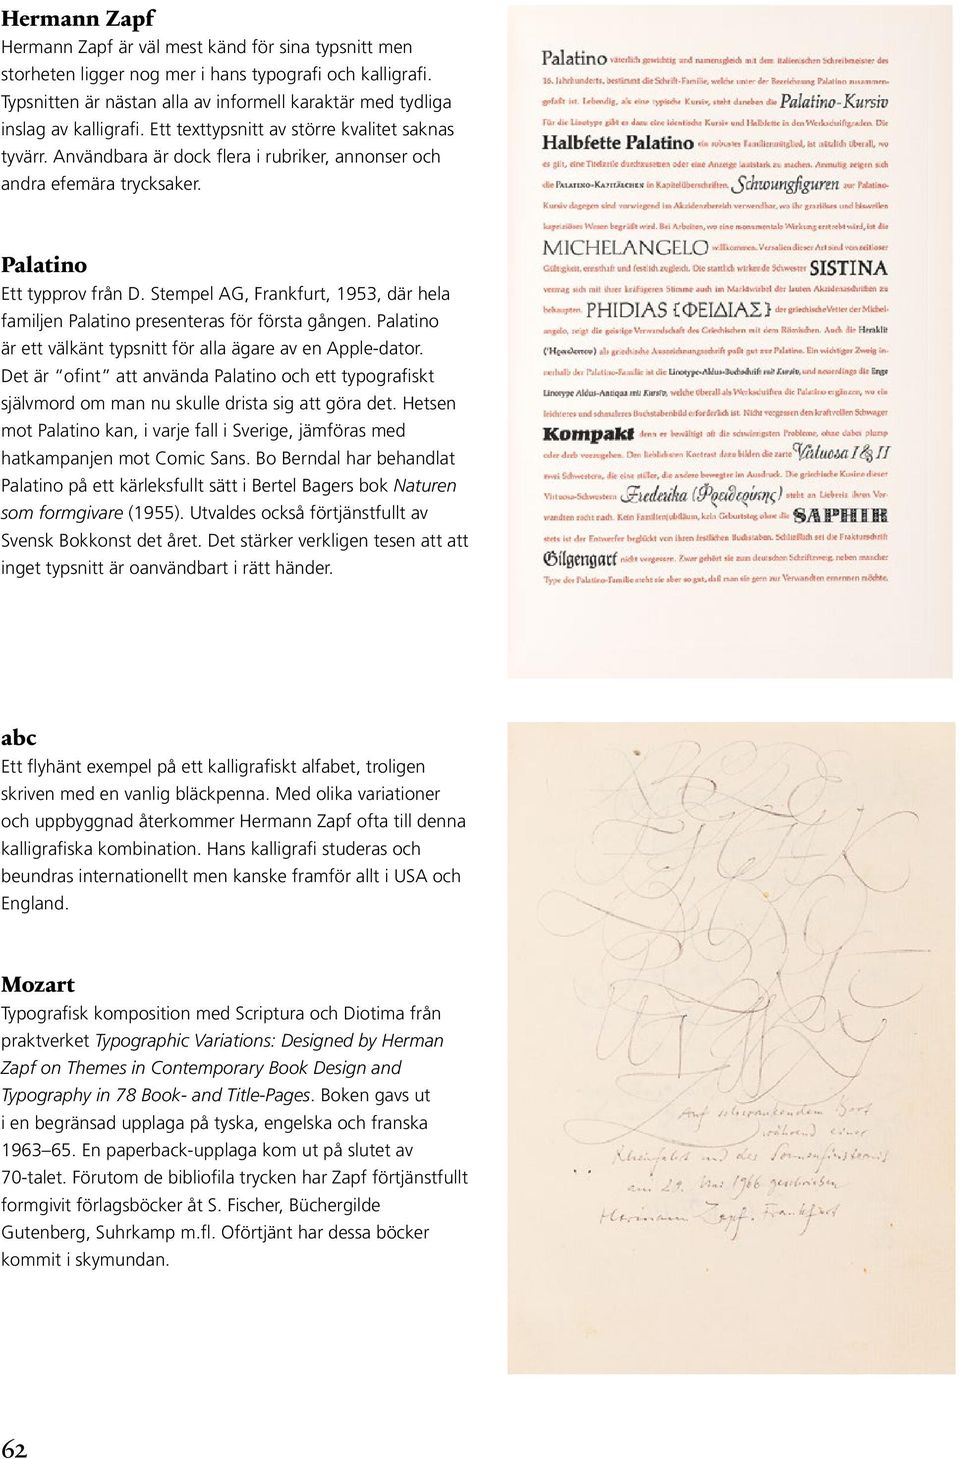 Hermann Zapf
Hermann Zapf är väl mest känd för sina typsnitt men
storheten ligger nog mer i hans typografi och kalligrafi.
Typsnitten är nästan alla av informell karaktär med tydliga
inslag av kalligrafi. Ett texttypsnitt av större kvalitet saknas
tyvärr. Användbara är dock flera i rubriker, annonser och
andra efemära trycksaker.
Palatino
Ett typprov från D. Stempel AG, Frankfurt, 1953, där hela
familjen Palatino presenteras för första gången. Palatino
är ett välkänt typsnitt för alla ägare av en Apple-dator.
Det är ”ofint” att använda Palatino och ett typografiskt
självmord om man nu skulle drista sig att göra det. Hetsen
mot Palatino kan, i varje fall i Sverige, jämföras med
hatkampanjen mot Comic Sans. Bo Berndal har behandlat
Palatino på ett kärleksfullt sätt i Bertel Bagers bok Naturen
som formgivare (1955). Utvaldes också förtjänstfullt av
Svensk Bokkonst det året. Det stärker verkligen tesen att att
inget typsnitt är oanvändbart i rätt händer.
Palatino väterlich gewichtig und namensgleich mit dem italienischen Schreibmeister des
16. Jahrhunderts, bestimmt die Schrift-Familie, welche unter der Bezeichnung Palatino zusammen-
gefaßt ist. Lebendig, als eine typische Kursiv, steht daneben die Palatino-Kursiv
Für die Linotype gibt es dazu eine identische Kursiv und Halbfette in den Werkschriftgraden. Die
Halbfette Palatino ein robustes Familienmitglied, ist nützlich überall, wo
es gilt, eine Titelzeile durchzusetzen oder eine Anzeige lautstark zu machen. Anmutig zeigen sich
die PALATINO-KAPITÄLCHEN in Kapitelüberschriften. Schwungfiguren zur Palatino-
Kursiv dagegen sind vorwiegend im Akzidenzbereich verwendbar, wo ihr graziöses und bisweilen
kapriziöses Wesen begrüßt wird. Bei Arbeiten, wo eine monumentale Wirkung erstrebt wird, ist die
MICHELANGELO willkommen. Versalien dieser Art sind von zeitloser
Gültigkeit, ernsthaft und festlich zugleich. Die stattlich wirkende Schwester SISTINA
vermag sich mit ihrer kräftigeren Stimme auch im Marktwirbel der lauten Akzidenzschriften zu
behaupten. PHIDIAS {ΦΕΙΔΙΑΣ} der griechische Vetter der Michel-
angelo, zeigt die geistige Verwandschaft des Griechischen mit dem Römischen. Auch die Heraklit
(Ἡρακλειτου) als griechische Auszeichnungsschrift paßt gut zur Palatino. Ein wichtiger Zweig in-
nerhalb der Palatino-Familie ist die Linotype-Aldus-Buchschrift mit Kursiv, und neuerdings die Enge
Linotype Aldus-Antiqua mit Kursiv, welche überall als Werkschrift die Palatino ergänzen, wo ein
leichteres und schmaleres Buchstabenbild erforderlich ist. Nicht vergessen den kraftvollen Schwager
Kompakt denn er bewältigt oft die schwierigsten Probleme, ohne dabei plump
oder derb vorzugehen. Den lieblichsten Kontrast dazu bilden die zarte Virtuosa I & II
zwei Schwestern, die eine stiller, die andere bewegter im Ausdruck. Die griechische Kusine dieser
Virtuosa-Schwestern Frederika (Φρειδερίκης) steht an Liebreiz ihren Ver-
wandten nicht nach. Kein Familienjubiläum, kein Geburtstag ohne die SAPHIR
stets ist der Entwerfer beglückt von ihren festlichen Buchstaben. Schließlich sei die Frakturschrift
Gilgengart nicht vergessen. Zwar gehört sie zum deutschen Schriftzweig, neben mancher
Type der Palatino-Familie steht sie aber so gut, daß man sie gern zur Verwandten ernennen möchte.
abc
Ett flyhänt exempel på ett kalligrafiskt alfabet, troligen
skriven med en vanlig bläckpenna. Med olika variationer
och uppbyggnad återkommer Hermann Zapf ofta till denna
kalligrafiska kombination. Hans kalligrafi studeras och
beundras internationellt men kanske framför allt i USA och
England.
Mozart
Typografisk komposition med Scriptura och Diotima från
praktverket Typographic Variations: Designed by Herman
Zapf on Themes in Contemporary Book Design and
Typography in 78 Book- and Title-Pages. Boken gavs ut
i en begränsad upplaga på tyska, engelska och franska
1963–65. En paperback-upplaga kom ut på slutet av
70-talet. Förutom de bibliofila trycken har Zapf förtjänstfullt
formgivit förlagsböcker åt S. Fischer, Büchergilde
Gutenberg, Suhrkamp m.fl. Oförtjänt har dessa böcker
kommit i skymundan.
Auf schwankendem Bort
während einer
Rheinfahrt und des Sonnenfinsternis
am 29. Mai 1966 geschrieben
Hermann Zapf. Frankfurt
62